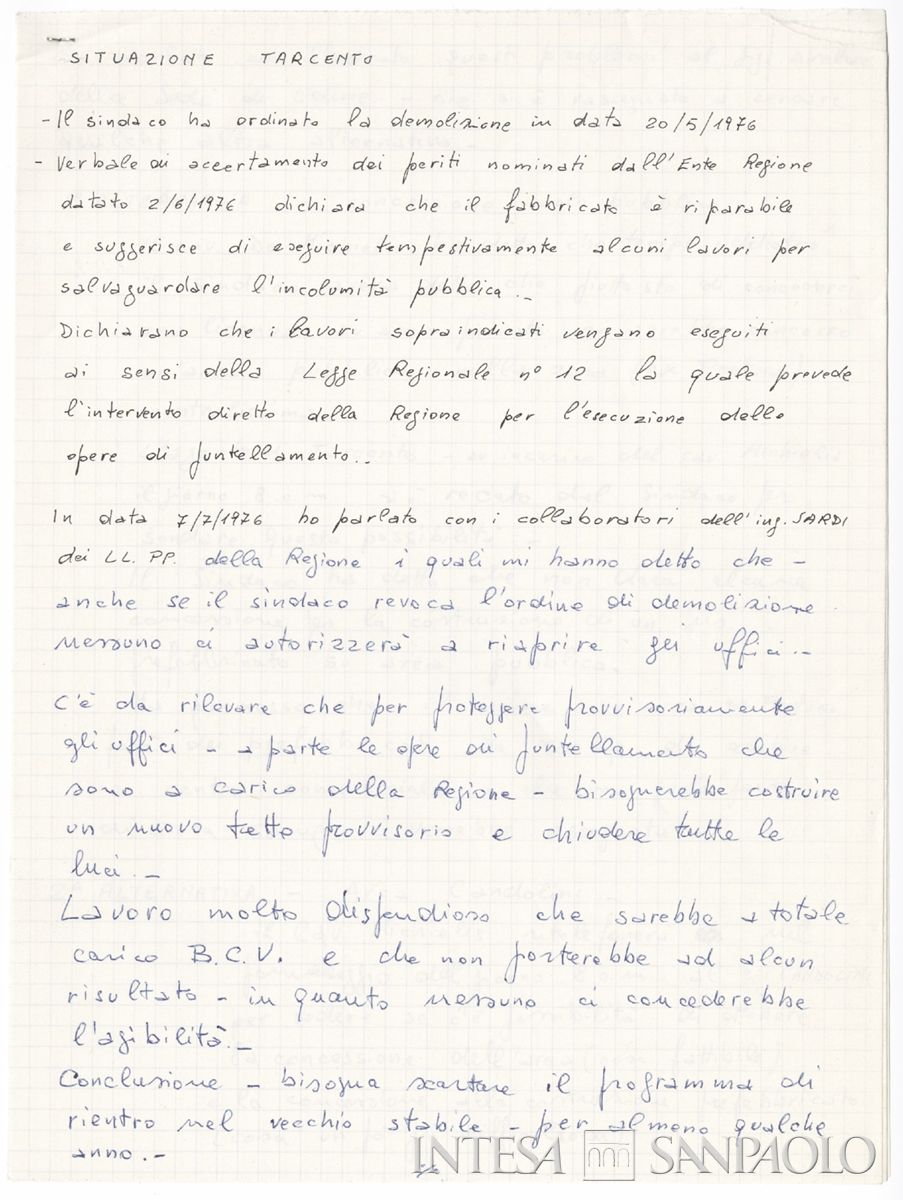 SITUAZIONE TARCENTO
- Il sindaco ha ordinato la demolizione in data 20/5/1976
- Verbale di accertamento dei periti nominati dall'Ente Regione
datato 2/6/1976 dichiara che il fabbricato è riparabile
e suggerisce di eseguire tempestivamente alcuni lavori per
salvaguardare l'incolumità pubblica. -
Dichiarano che i lavori sopraindicati vengano eseguiti
ai sensi della Legge Regionale n° 12 la quale prevede
l'intervento diretto della Regione per l'esecuzione delle
opere di puntellamento. -
In data 7/7/1976 ho parlato con i collaboratori dell'ing. SARDI
dei LL. PP. della Regione i quali mi hanno detto che -
anche se il sindaco revoca l'ordine di demolizione
nessuno ci autorizzerà a riaprire gli uffici. -
C'è da rilevare che per proteggere provvisoriamente
gli uffici - a parte le opere di puntellamento che
sono a carico della Regione - bisognerebbe costruire
un nuovo tetto provvisorio e chiudere tutte le
luci. -
Lavoro molto dispendioso che sarebbe a totale
carico B.C.V. e che non porterebbe ad alcun
risultato - in quanto nessuno ci concederebbe
l'agibilità. -
Conclusione - bisogna scartare il programma di
rientro nel vecchio stabile - per almeno qualche
anno. -
./.
INTESA SANPAOLO